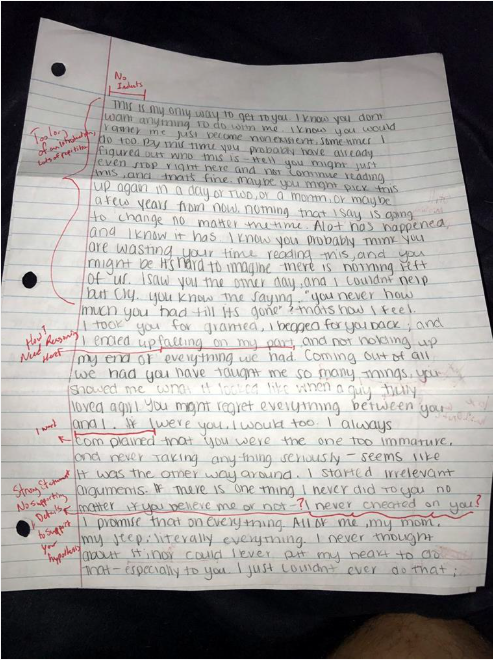 No
Indents
Too long
of an introduction,
lots of repetition
This is my only way to get to you. I know you don't
want anything to do with me. I know you would
rather me just become nonexistent, sometimes I
do too. By this time you probably have already
figured out who this is - Hell you might just
even stop right here and not continue reading
this, and that's fine. maybe you might pick this
up again in a day or two, or a month, or maybe
a few years from now, nothing that I say is going
to change no matter the time. Alot has happened,
and I know it has. I know you probably think you
are wasting your time reading this, and you
might be. It's hard to imagine there is nothing left
of us. I saw you the other day, and I couldn't help
but cry. you know the saying, "you never how
much you had till its gone" thats how I feel.
I took you for granted, I begged for you back, and
How?
Need Reasoning
Here!
I ended up failing on my part, and not holding up
my end of everything we had. Coming out of all
we had you have taught me so many things, you
showed me what it looked like when a guy truly
loved a girl. You might regret everything between you
1 word
and I. If I were you, I would too. I always
complained that you were the one too immature,
and never taking anything seriously - seems like
it was the other way around. I started irrelevant
Strong Statement
No supporting
Details
to support
your
hypothesis
arguments. If there is one thing I never did to you no
matter if you believe me or not -? I never cheated on you?
I promise that on everything. All of me, my mom,
my step, literally everything. I never thought
about it, nor could I ever put my heart to do
that - especially to you. I just couldn't ever do that;